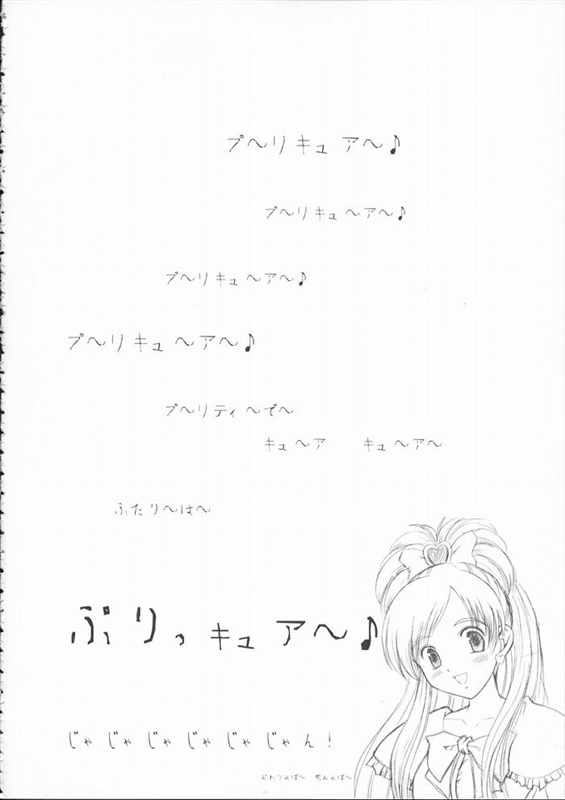 プ～リキュア～♪
プ～リキュ～ア～♪
プ～リキュ～ア～♪
プ～リキュ～ア～♪
プ～リティ～で～
キュ～ア　キュ～ア～
ふたり～は～
ぷりっキュア～♪
じゃじゃじゃじゃじゃじゃん!